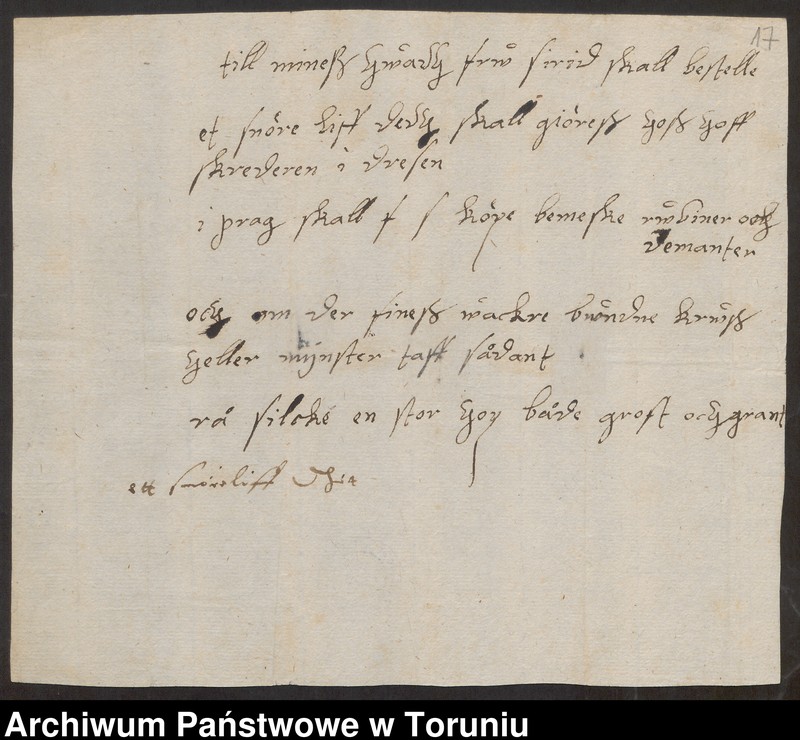 17
till mines hwadh frw sirid skall bestelle
et snöre liff dedh skall giöres hos hoff
skrederen i dresen
i prag skall f s köpe bemeske rwbiner och
demanter
och om der fines wackre bwndne krws
heller mynster taff sådant
rå silcke en stor hop både groft och grant
ett snörliff
Archiwum Państwowe w Toruniu